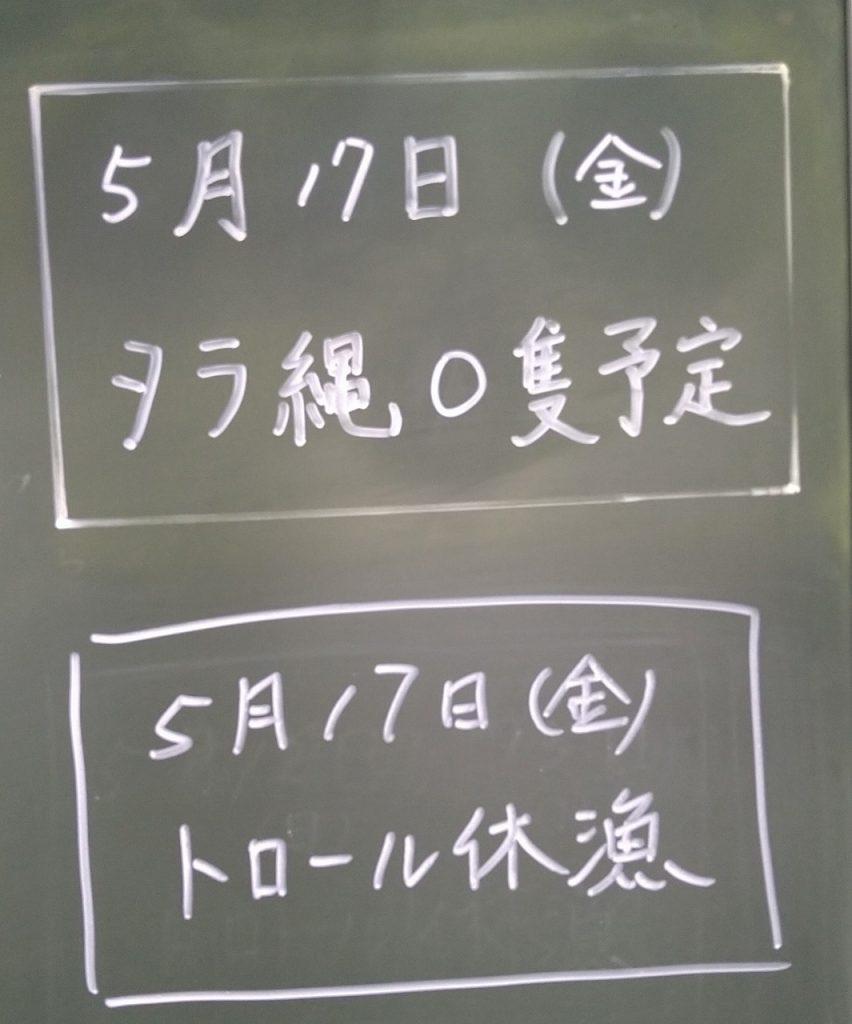 5月17日 (金)
タラ縄0隻予定
5月17日(金)
トロール休漁